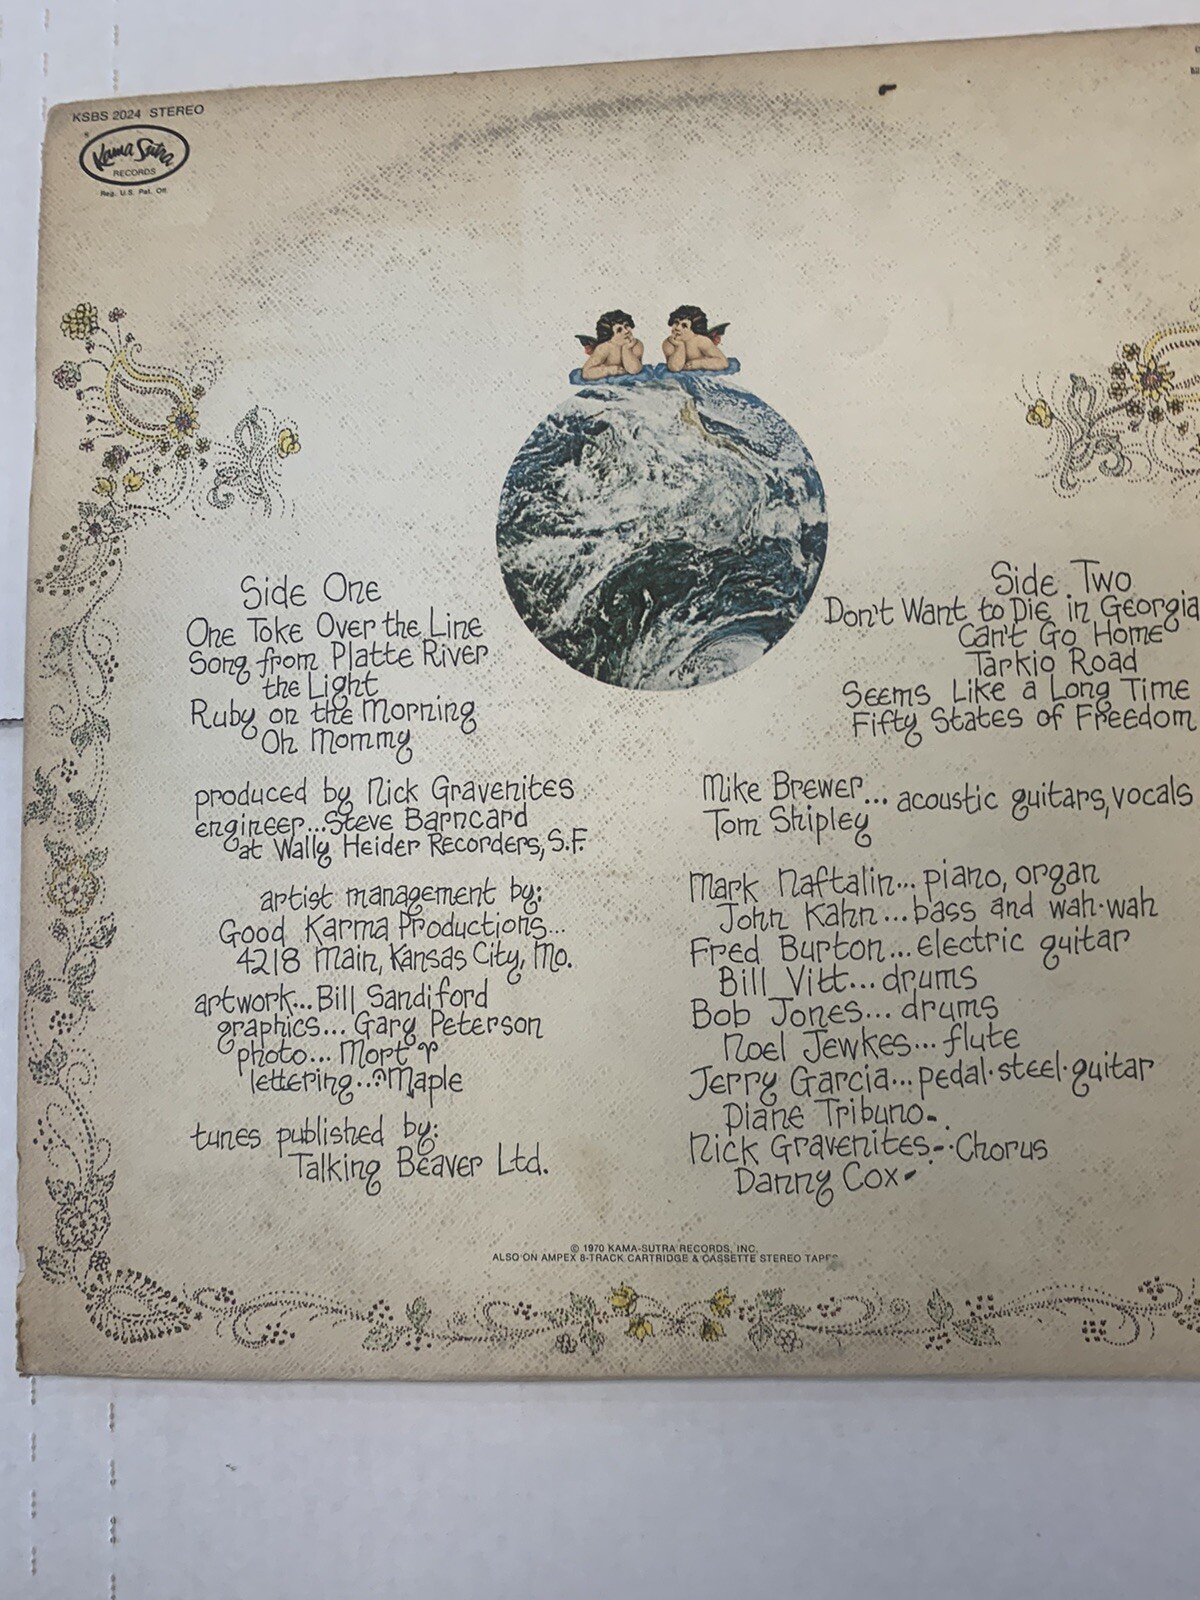 KSBS 2024 STEREO
Kama Sutra
RECORDS
Reg. U.S. Pat. Off.
Side One
One Toke Over the Line
Song from Platte River
the Light
Ruby on the Morning
Oh Mommy
produced by Nick Gravenites
engineer...Steve Barncard
at Wally Heider Recorders, S.F.
artist management by:
Good Karma Productions...
4218 Main, Kansas City, Mo.
artwork...Bill Sandiford
graphics... Gary Peterson
photo... Mort
lettering...Maple
tunes published by:
Talking Beaver Ltd.
Side Two
Don't Want to Die in Georgia
Can't Go Home
Tarkio Road
Seems Like a Long Time
Fifty States of Freedom
Mike Brewer... acoustic guitars, vocals
Tom Shipley
Mark Naftalin... piano, organ
John Kahn...bass and wah-wah
Fred Burton...electric guitar
Bill Vitt...drums
Bob Jones... drums
Noel Jewkes... flute
Jerry Garcia...pedal·steel·guitar
Diane Tribuno
Nick Gravenites...Chorus
Danny Cox
© 1970 KAMA-SUTRA RECORDS, INC.
ALSO ON AMPEX 8-TRACK CARTRIDGE & CASSETTE STEREO TAPES